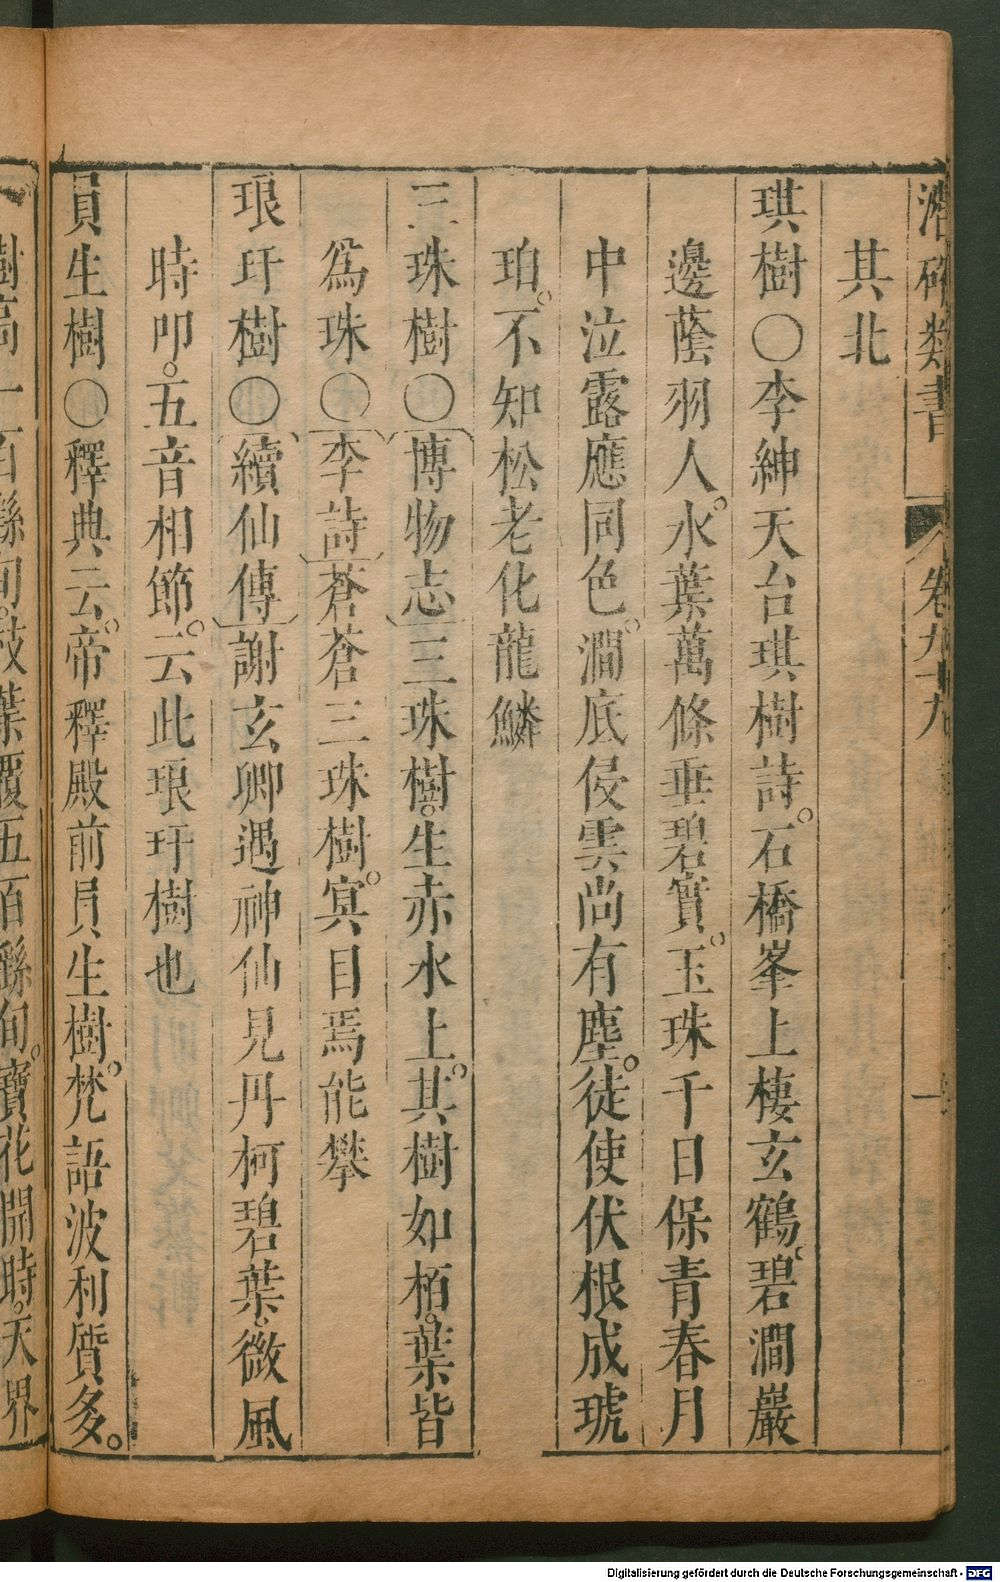 潛確類書 卷九十九 一
其北
琪樹〇李紳天台琪樹詩。石橋峯上棲玄鶴。碧澗巖
邊蔭羽人。水葉萬條垂碧實。玉珠千日保青春月
中泣露應同色。澗底侵雲尚有塵。徒使伏根成琥
珀。不知松老化龍鱗
三珠樹〇博物志三珠樹。生赤水上。其樹如栢。葉皆
爲珠〇李詩蒼蒼三珠樹。冥目焉能攀
琅玕樹〇續仙傳謝玄卿遇神仙見丹柯碧葉。微風
時叩。五音相節。云此琅玕樹也
員生樹〇釋典云。帝釋殿前員生樹。梵語波利質多。
樹高一百繇旬。枝葉覆五百繇旬。寶花開時。天界
Digitalisierung gefördert durch die Deutsche Forschungsgemeinschaft - DFG